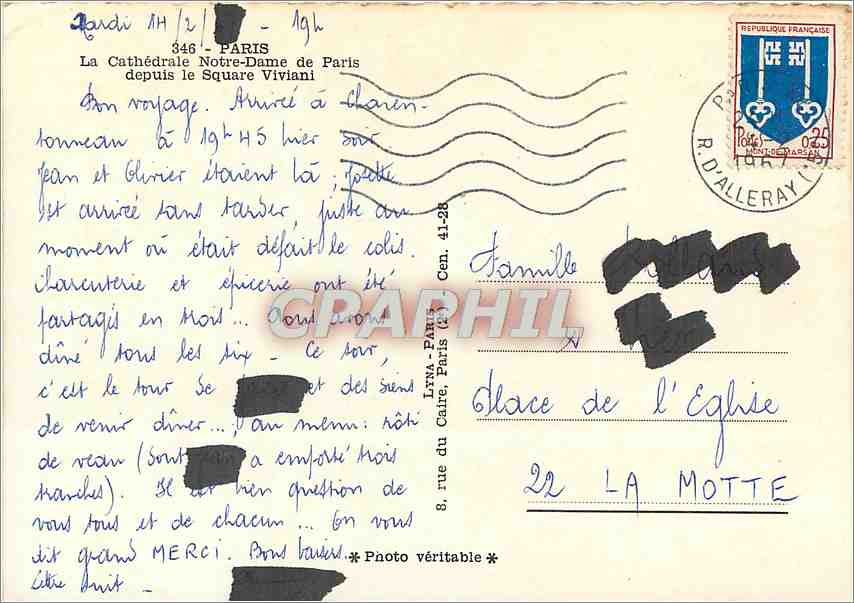 Mardi 14/2/ - 19h
346 - PARIS
La Cathédrale Notre-Dame de Paris
depuis le Square Viviani
Bon voyage. Arrivée à Charen-
tonneau à 19h45 hier soir.
Jean et Olivier étaient là ; Josette
est arrivée sans tarder, juste au
moment où était défait le colis.
Charcuterie et épicerie ont été
partagés en trois... Nous avons
dîné tous les six - Ce soir,
c'est le tour de et des siens
de venir dîner... ; au menu : rôti
de veau (dont a emporté trois
tranches). Il est bien question de
vous tous et de chacun... On vous
dit grand MERCI. Bons baisers...
Lettre suit -
LYNA - PARIS
8, rue du Caire, Paris (2e) Cen. 41-28
* Photo véritable *
REPUBLIQUE FRANÇAISE
POSTES 0,25
MONT-DE-MARSAN
1967
R. D'ALLERAY
Famille
Place de l'Eglise
22 LA MOTTE
CPAPHIL